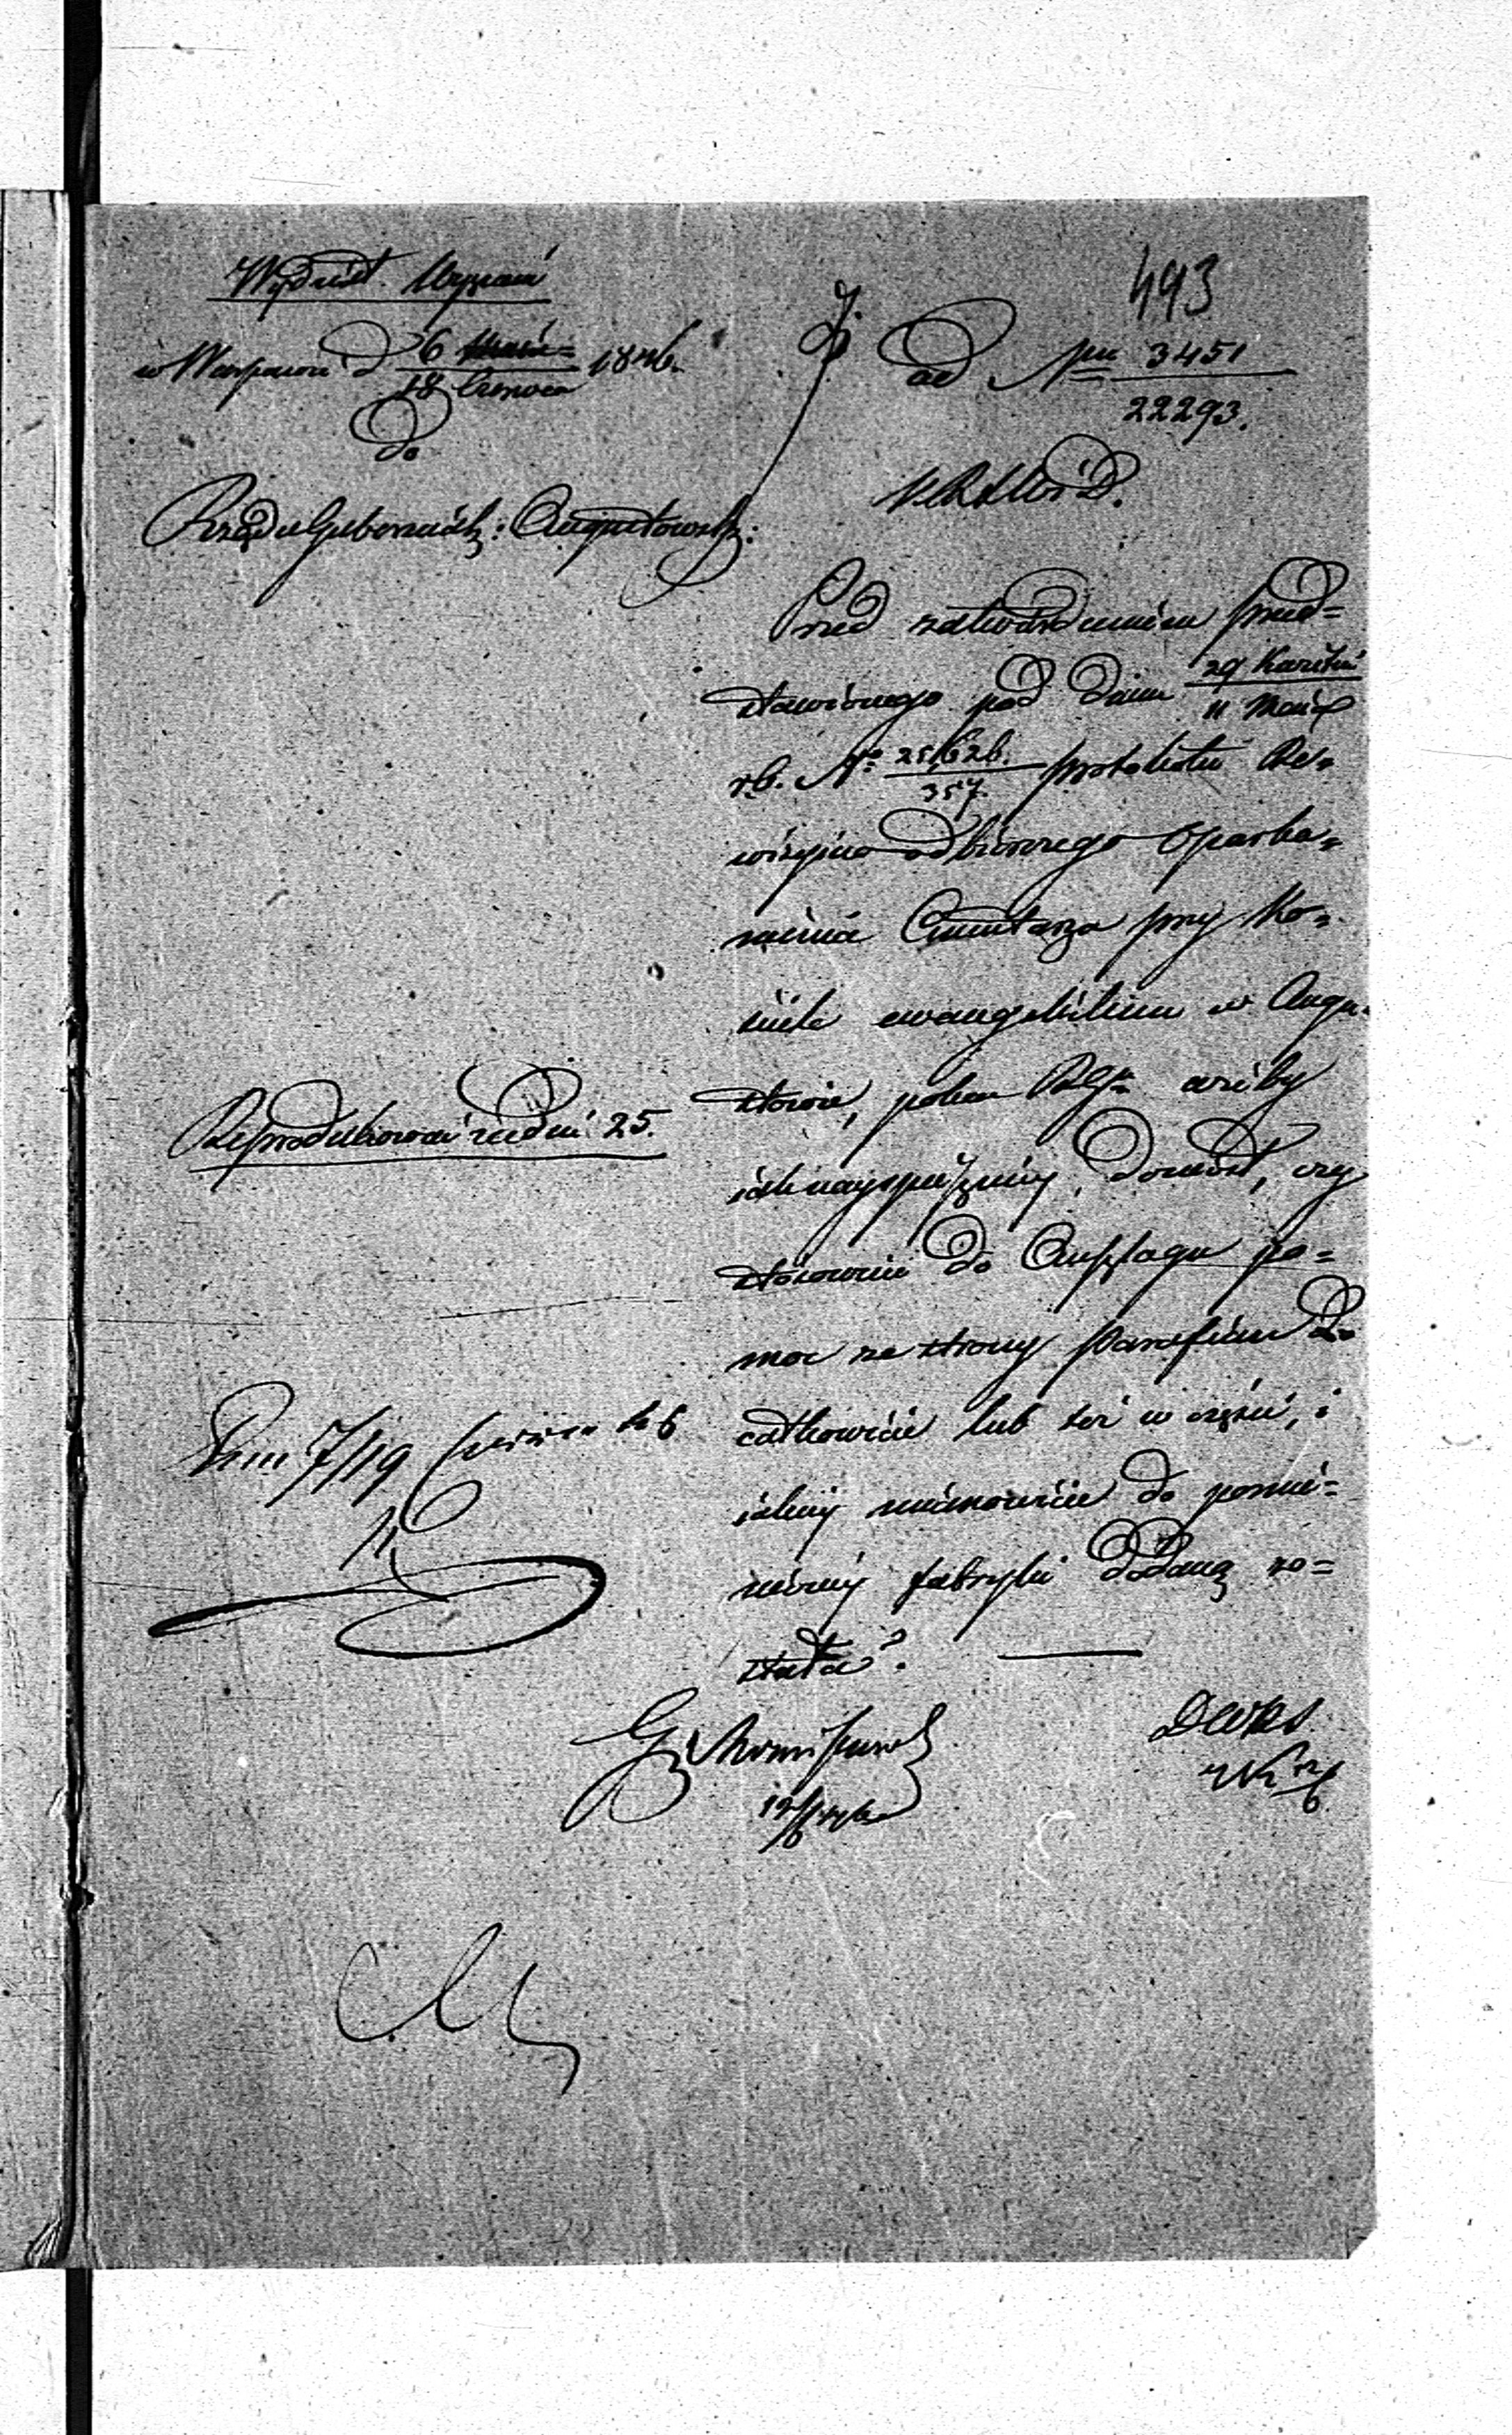 493
Wydział Wyznań
w Warszawie d 6/18 Czerwca 1846.
Do
Rządu Gubernialn: Augustowsk:
ad Nrm 3451/22293.
K.R.S.W.i D.
Przed zatwierdzeniem przed=
stawionego pod dniem 29 Kwietnia/11 Maja
r.b. No 25,626./357. protokółu Re=
wizyino odbiorczego oparka=
nienia Cmentarza przy Ko=
ściele ewangelickim w Augu=
stowie, poleca RGu ażeby
iaknayspieszniéy doniósł, czy
stósownie do Anszlagu po=
moc ze strony Parafian
całkowicie lub też w części, i
iakiéy mianowicie do pomie=
nionéy fabryki dodaną zo=
stała?
Reprodukować za dni 25.
Dnia 7/19 Czerwca 46